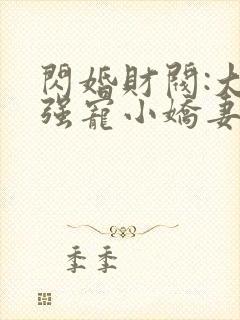 閃婚財閥:大
强寵小嬌妻
季季